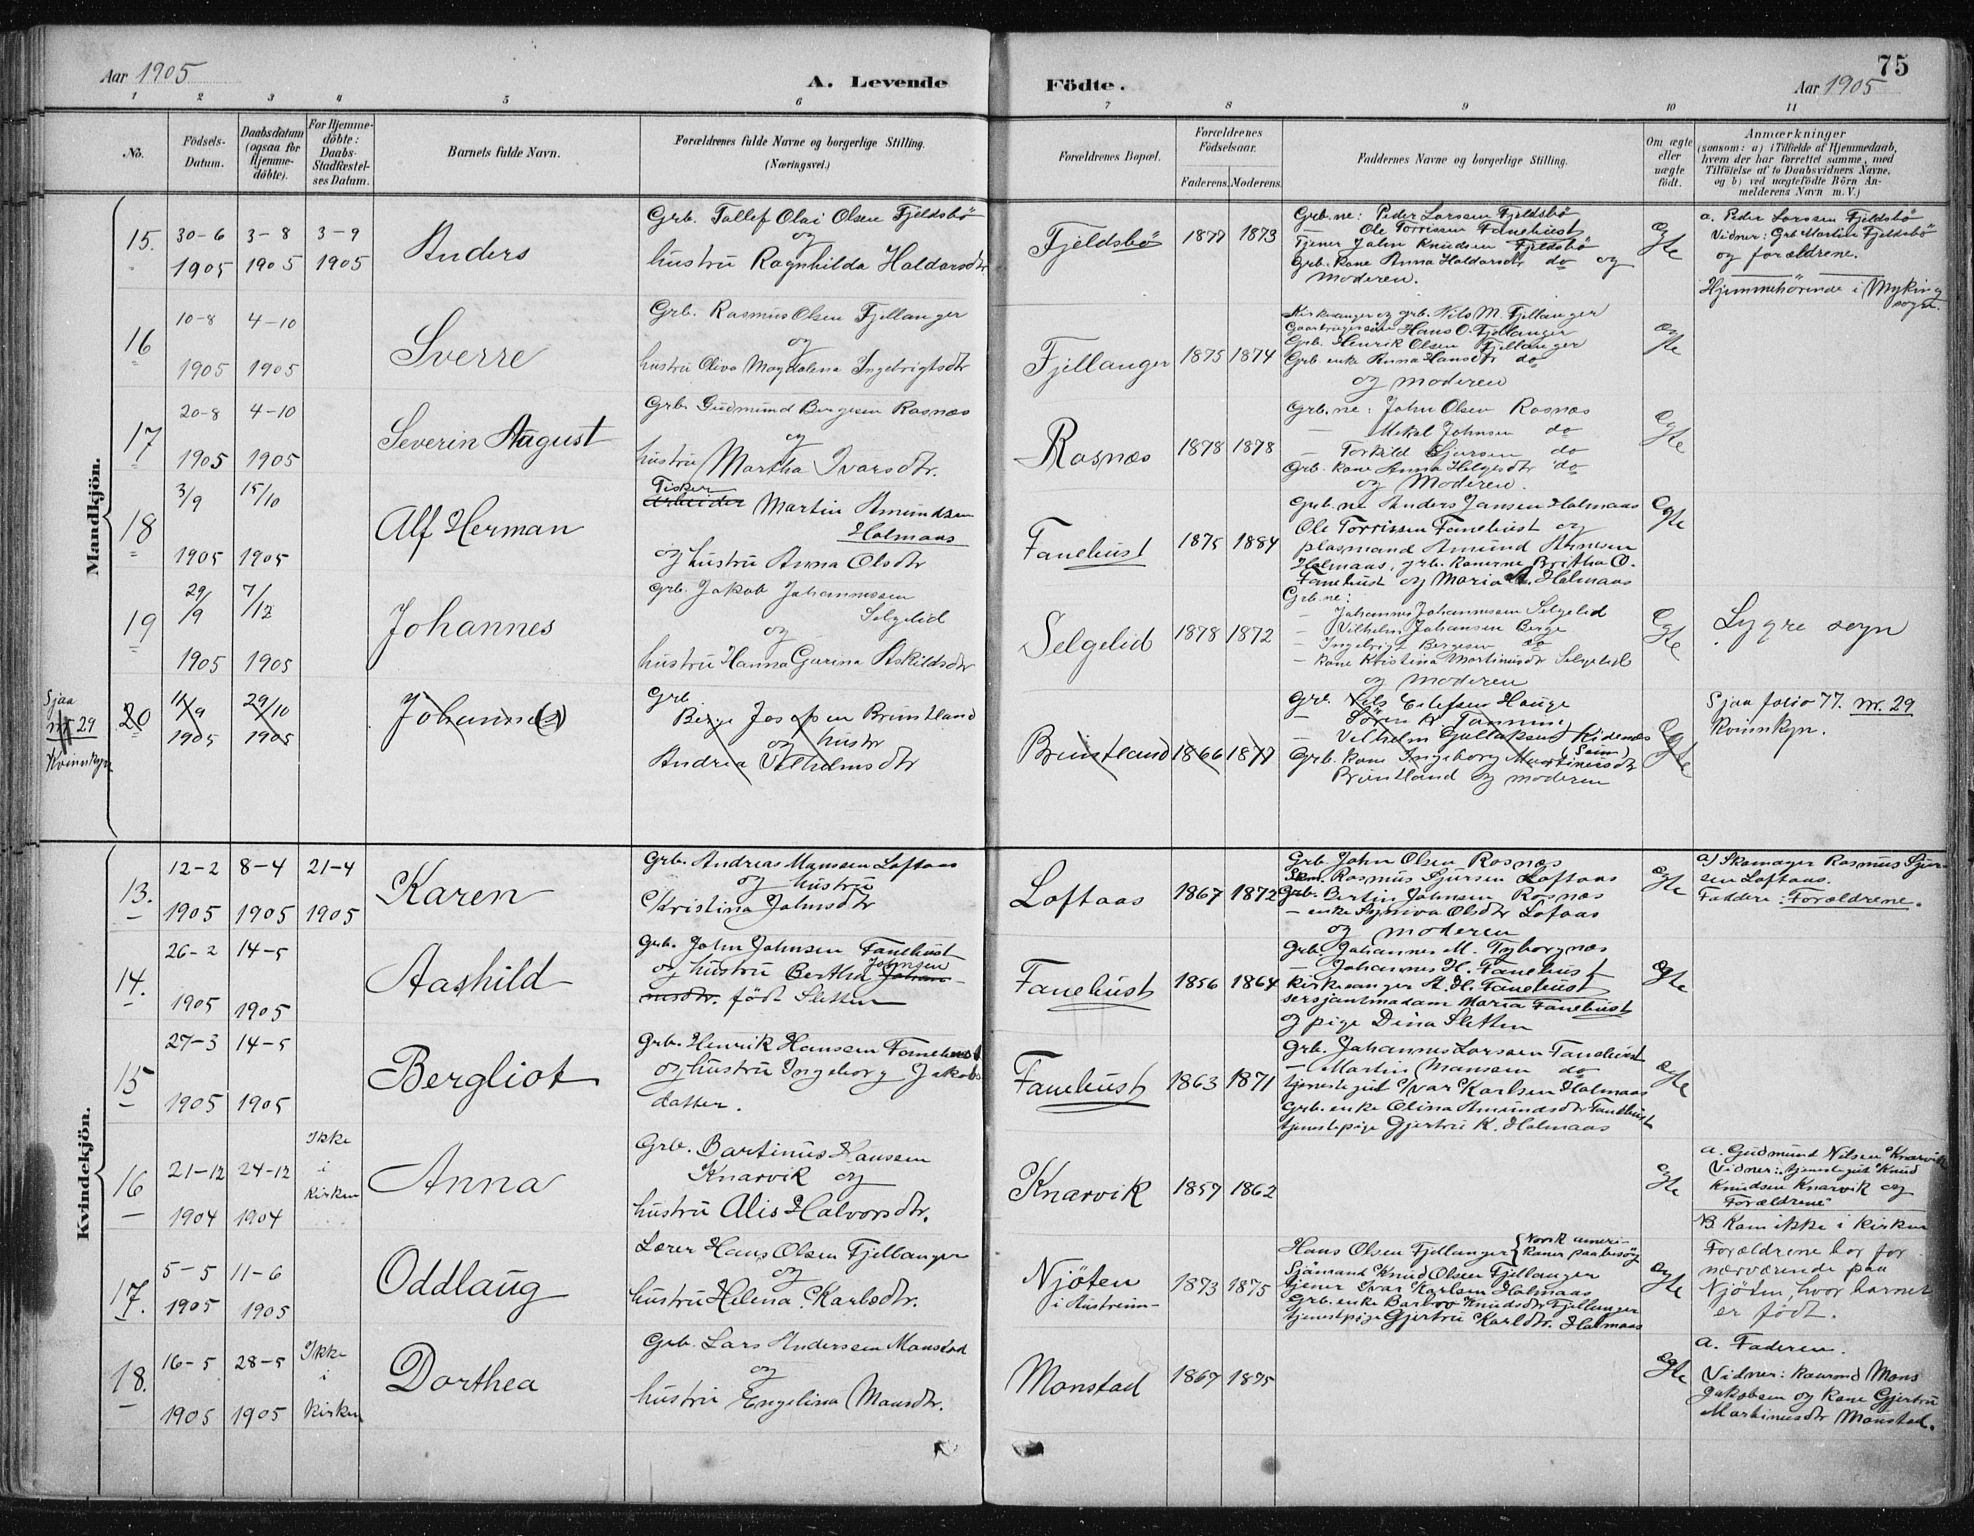 Aar 1905
A. Levende Födte.
Aar 1905
75
1 2 3 4 5 6 7 8 9 10 11
No.
Födsels-Datum.
Daabsdatum (ogsaa for Hjemme-döbte).
For Hjemme-döbte: Daabs-Stadfæstel-ses Datum.
Barnets fulde Navn.
Forældrenes fulde Navne og borgerlige Stilling.
(Næringsvei.)
Forældrenes Bopæl.
Forældrenes Födselsaar.
Faderens. Moderens.
Faddernes Navne og borgerlige Stilling.
Om ægte eller uægte födt.
Anmærkninger
(saasom: a) i Tilfælde af Hjemmedaab, hvem der har forrettet samme, med Tilföielse af to Daabsvidners Navne, og b) ved uægtefödte Börn An-melderens Navn m. V.)
Mandkjön.
15. 30-6 1905 3-8 1905 3-9 1905
Anders
Grb. Tollef Olai Olsen Fjeldsbö
og
hustru Ragnhilda Haldorsdtr
Fjeldsbö 1877 1873
Grb.ne: Peder Larssen Fjeldsbö
— Ole Torrissen Fanehust
Tjener John Knudsen Fjeldsbö
Grb. kone Anna Haldorsdtr do og
moderen.
Egte
a. Peder Larssen Fjeldsbö
Vidner: Grb Martin Fjeldsbö
og forældrene.
Hjemmehörende i Myking
sogn.
16 10-8 1905 4-10 1905
Sverre
Grb. Rasmus Olsen Fjellanger
og
hustru Oliva Magdalena Ingebrigtsdtr
Fjellanger 1875 1874
Kirkesanger og grb. Nils M. Fjellanger
Gaardbrugersön Hans O. Fjellanger
Grb. Henrik Olsen Fjellanger
Grb enke Anna Hansdtr do
og moderen
Egte
17 20-8 1905 4-10 1905
Severin August
Grb. Gudmund Bergesen Rosnæs
og
hustru Martha Ivarsdtr.
Rosnæs 1878 1878
Grb.ne: John Olsen Rosnæs
— Mikal Johnsen do
— Torkild Sjursen do
Grb. kone Anna Helgesdtr do
og Moderen.
Egte
18 3/9 1905 15/10 1905
Alf Herman
Fisker
Arbeider Martin Amundsen
Holmaas
og hustru Anna Olsdtr
Fanehust 1875 1884
Grb.ne Anders Jansen Holmaas
Ole Torrissen Fanehust og
plasmand Amund Arnesen
Holmaas, grb. konerne Bretha O.
Fanehust og Maria A. Holmaas
Egte
19 29/9 1905 7/12 1905
Johannes
Grb. Jakob Johannessen
Selgelid
og
hustru Hanna Gurina Askildsdtr
Selgelid 1878 1872
Grb.ne:
— Johannes Johannessen Selgelid
— Vilhelm Johansen Berge
— Ingebrigt Bergesen do
— kone Kristina Martinusdtr Selgelid
og moderen
Egte
Lygre sogn
Sjaa
nr 29
Kvinnkyn
20 11/9 1905 29/10 1905
Johanne(s)
Grb.
Berge Josefsen Bruntland
og hustr
Andrea Vilhelmsdtr
Bruntland 1866 1877
Grb. Nils Eilefsen Hauge
— Vilhelm Gullaksen Kidenæs
(Seim)
Grb. kone Ingeborg Martinusdtr
Bruntland og moderen
Egte
Sjaa folio 77. nr. 29
Kvinnkyn.
Kvindekjön.
13. 12-2 1905 8-4 1905 21-4 1905
Karen
Grb. Andreas Monssen Loftaas
og hustru
Kristina Johnsdtr
Loftaas 1867 1872
Grb. John Olsen Rosnæs
Skm. Rasmus Sjursen Loftaas
Grb. Bertin Johnsen Rosnæs
— enke Synnva Olsdtr Lofaas
og moderen
Egte
a) Skomager Rasmus Sjur-
sen Loftaas.
Faddere: Forældrene.
14. 26-2 1905 14-5 1905
Aashild
Grb. John Johnsen Fanehust
Johnsen
og hustru Bertha Johan-
nesdtr. född Sletten
Fanehust 1856 1864
Grb. Johannes M. Tyborgnæs
— Johannes H. Fanehust
Kirkesanger A. H. Fanehust
sersjantmadam Maria Fanehust
og pige Dina Sletten
Egte
15 27-3 1905 14-5 1905
Bergliot
Grb. Henrik Hansen Fanehust
og hustru Ingeborg Jakobs
datter.
Fanehust 1863 1871
Grb. Johannes Larssen Fanehust
— Martin Monsen do
tjenestegut Ivar Karlsen Holmaas
Grb. enke Olina Amundsdtr Fanehust
tjenestepige Gjertru K. Holmaas
Egte
16 21-12 1904 24-12 1904 Ikke i Kirken
Anna
Grb. Bartinus Hansen
Knarvik og
hustru Alis Halvorsdtr.
Knarvik 1857 1862
Egte
a. Gudmund Nilsen Knarvik
Vidner: tjenestegut Knud
Knudsen Knarvik og
Forældrene
NB. Kom ikke i Kirken
17. 5-5 1905 11-6 1905
Oddlaug
Lærer Hans Olsen Fjellanger
og
hustru Helena Karlsdtr.
Njöten
i Austreim-
1873 1875
Hans Olsen Fjellanger { Norsk ameri-
kaner paa besög
Sjömand Knud Olsen Fjellanger
tjener Ivar Karlsen Holmaas
Grb. enke Barbro Knudsdtr Fjellanger
tjenestpige Gjertru Karlsdtr. Holmaas
Egte
Forældrene bor for
nærværende paa
Njöten, hvor barnet
er födt.
18. 16-5 1905 28-5 1905 Ikke i Kirken
Dorthea
Grb. Lars Andersen Monstad
og
hustru Engelina Monsdtr.
Monstad 1867 1875
Egte
a. Faderen.
Vidner: kaarmd Mons
Jakobsen og kone Gjertru
Martinusdtr Monstad.